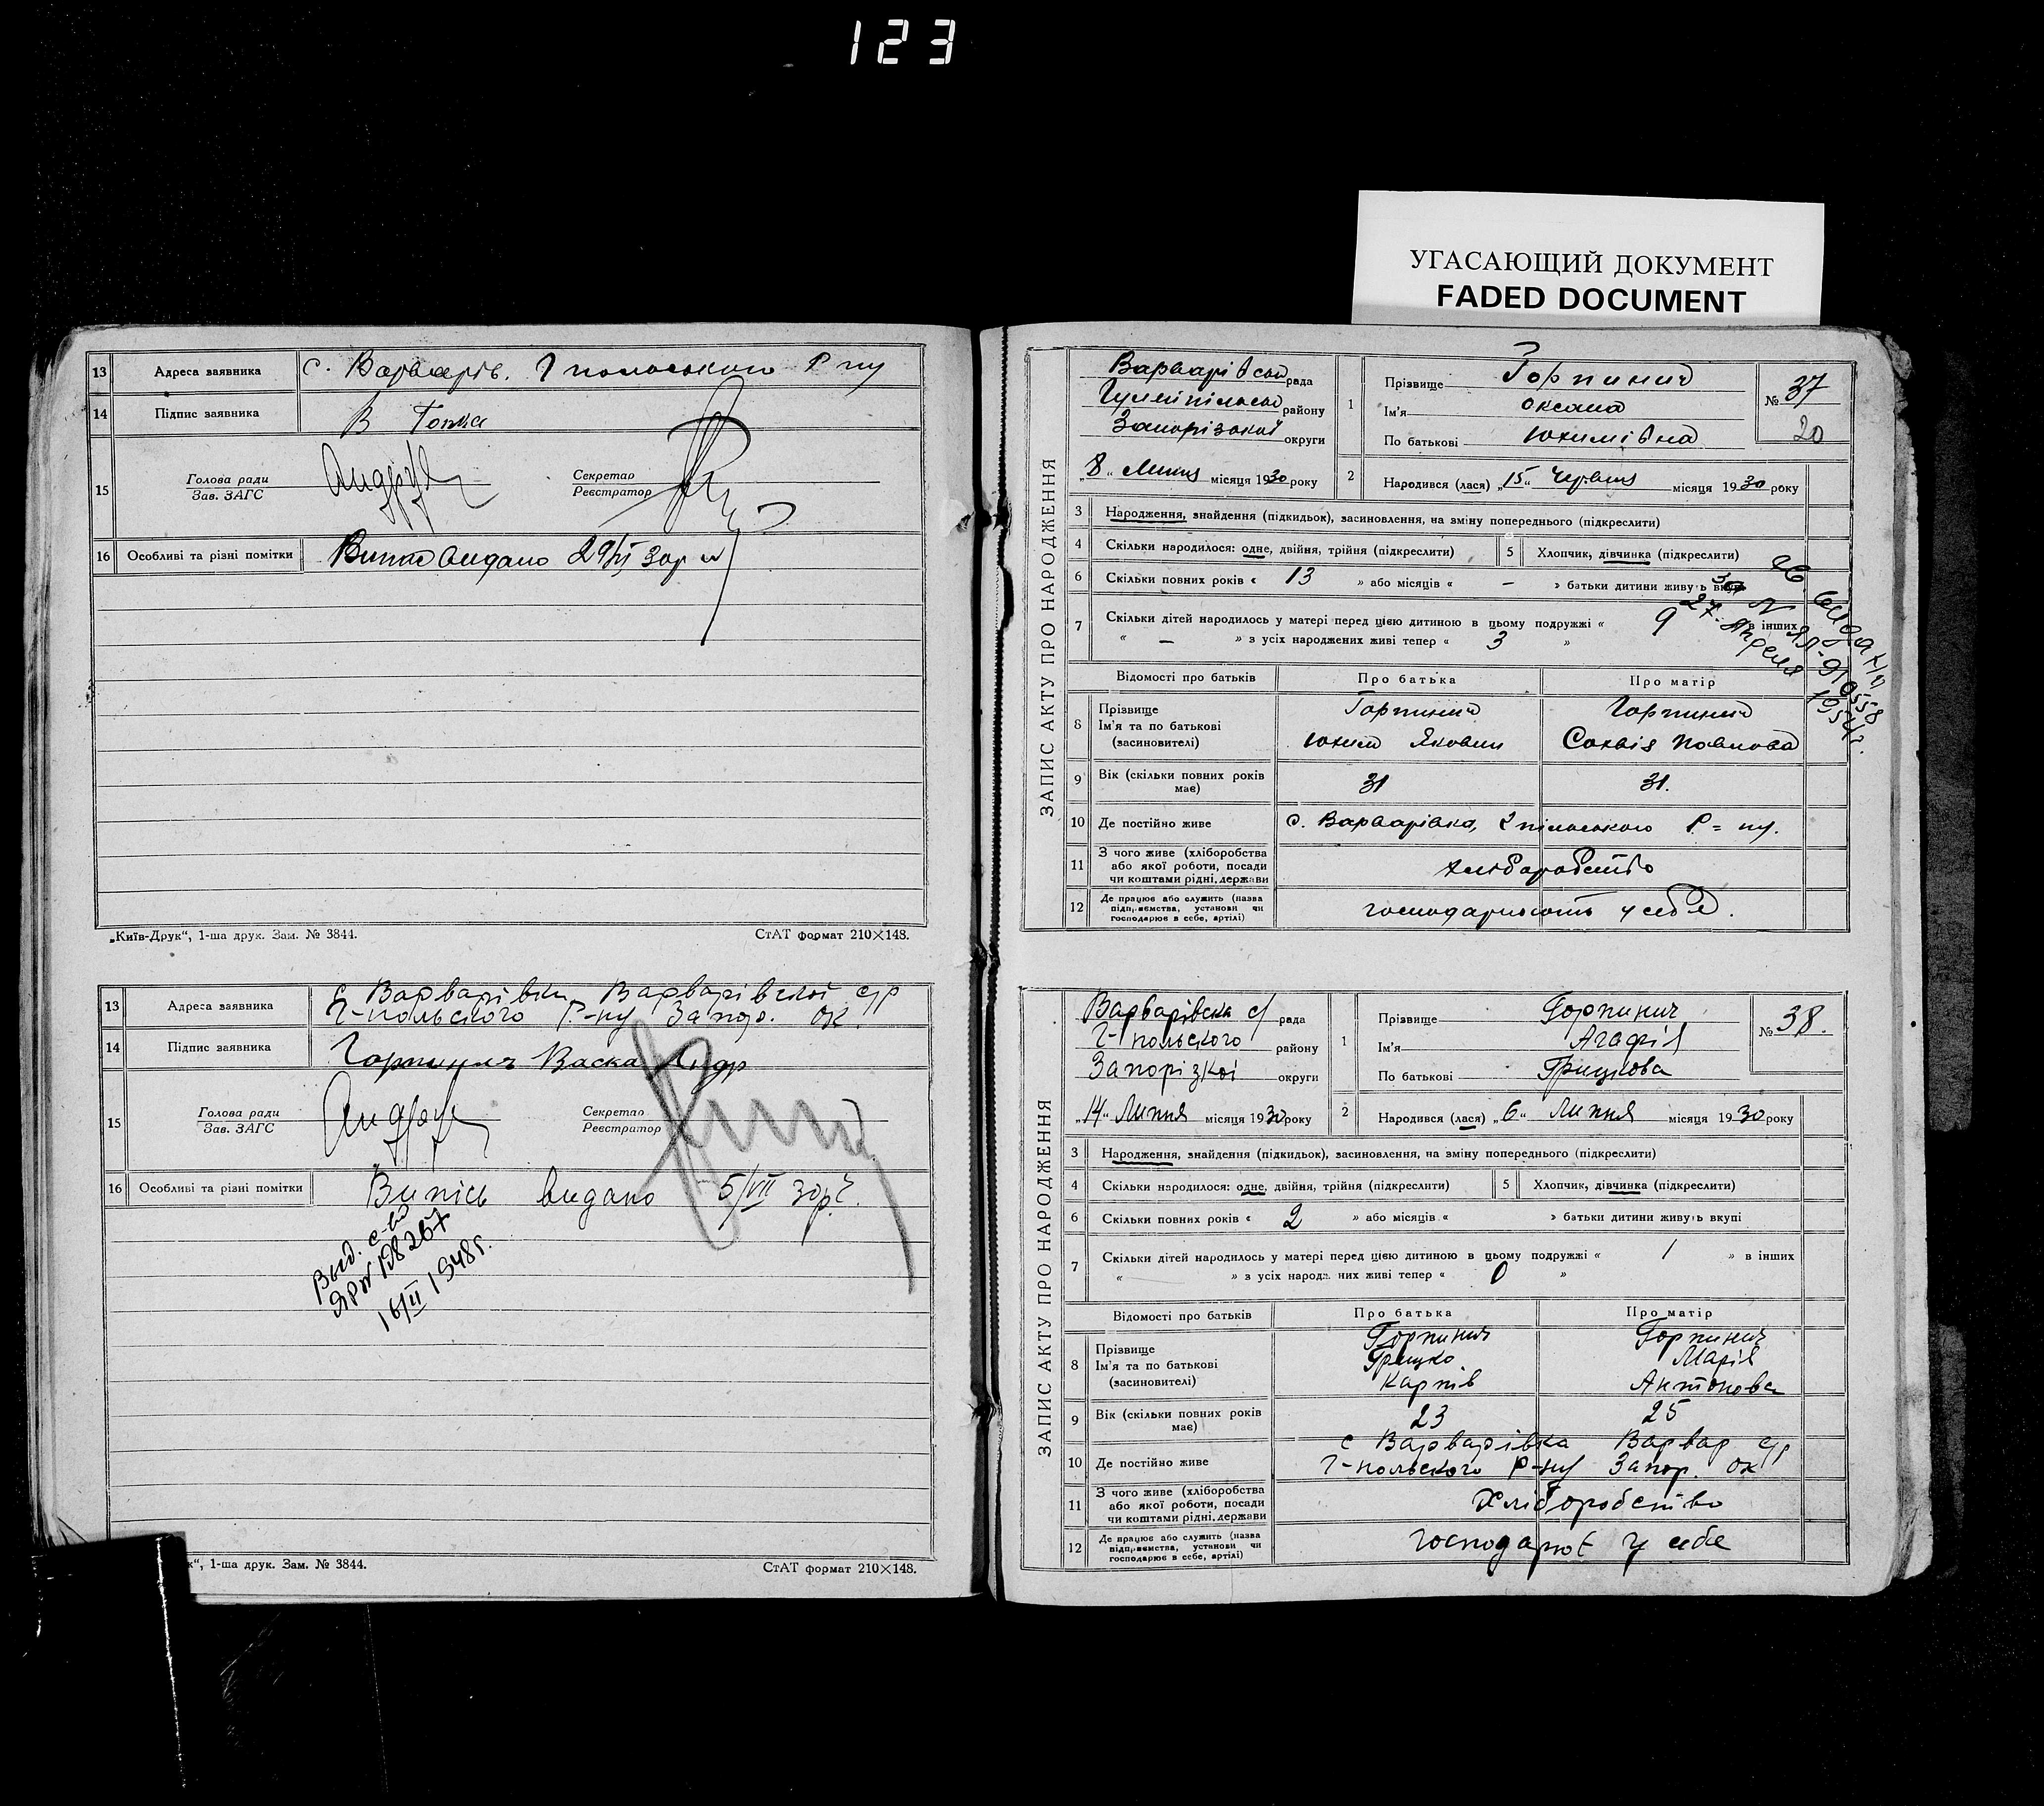 123
УГАСАЮЩИЙ ДОКУМЕНТ
FADED DOCUMENT
13 Адреса заявника с. Варварів. Р ну
14 Підпис заявника В Топка
15 Голова ради
Зав. ЗАГС
Секретар
Реєстратор
16 Особливі та різні помітки видано 29/VI 30р
„Київ-Друк“, 1-ша друк. Зам. № 3844. СтАТ формат 210×148.
13 Адреса заявника с Варварівки Варварівської с/р
Г-польского Р-ну Запор. ок.
14 Підпис заявника Горпинич Васка Андр
15 Голова ради
Зав. ЗАГС
Секретар
Реєстратор
16 Особливі та різні помітки Випісь видано 5/VII 30р.
Выд. с-во
ЯР № 198267
16/II 1948г.
к“, 1-ша друк. Зам. № 3844. СтАТ формат 210×148.
ЗАПИС АКТУ ПРО НАРОДЖЕННЯ
рада
району
Запорізької округи
„8“ Липня місяця 1930 року
1 Прізвище Горпинич
Ім'я Оксана
По батькові Юхимівна
№ 37
20
2 Народився (лася) „15“ Червня місяця 1930 року
3 Народження, знайдення (підкидьок), засиновлення, на зміну попереднього (підкреслити)
4 Скільки народилося: одне, двійня, трійня (підкреслити) 5 Хлопчик, дівчинка (підкреслити)
6 Скільки повних років « 13 » або місяців « – » батьки дитини живуть вкупі
7 Скільки дітей народилось у матері перед цією дитиною в цьому подружжі « 9 » в інших
« – » з усіх народжених живі тепер « 3 »
27. Апреля 195
Відомості про батьків Про батька Про матір
8 Прізвище
Ім'я та по батькові
(засиновителі)
Горпинич
Юхим Якович
Горпинич
Софія Павлова
9 Вік (скільки повних років має) 31 31.
10 Де постійно живе с. Варварівка, Г пільського Р=ну.
11 З чого живе (хліборобства
або якої роботи, посади
чи коштами рідні, держави
хліборобство
12 Де працює або служить (назва
підприємства, установи чи
господарює в себе, артілі)
господарюють у себе.
ЗАПИС АКТУ ПРО НАРОДЖЕННЯ
Варварівська с/ рада
Г-польского району
Запорізкої округи
„14“ Липня місяця 1930 року
1 Прізвище Горпинич
Ім'я Агафія
По батькові Грицкова
№ 38.
2 Народився (лася) „6“ Липня місяця 1930 року
3 Народження, знайдення (підкидьок), засиновлення, на зміну попереднього (підкреслити)
4 Скільки народилося: одне, двійня, трійня (підкреслити) 5 Хлопчик, дівчинка (підкреслити)
6 Скільки повних років « 2 » або місяців « » батьки дитини живуть вкупі
7 Скільки дітей народилось у матері перед цією дитиною в цьому подружжі « 1 » в інших
« » з усіх народжених живі тепер « 0 »
Відомості про батьків Про батька Про матір
8 Прізвище
Ім'я та по батькові
(засиновителі)
Горпинич
Грицко
Карпів
Горпинич
Марія
Антонова
9 Вік (скільки повних років має) 23 25
10 Де постійно живе с Варварівка Варвар с/р
Г-польского Р-ну Запор. ок
11 З чого живе (хліборобства
або якої роботи, посади
чи коштами рідні, держави
Хліборобство
12 Де працює або служить (назва
підприємства, установи чи
господарює в себе, артілі)
господарює у себе